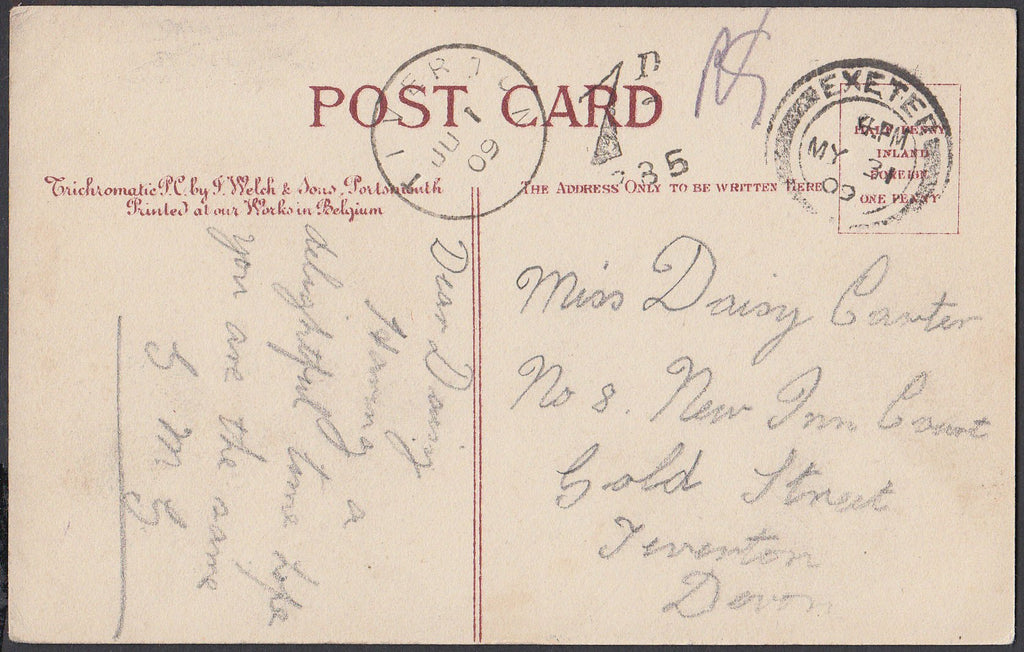 POST CARD
TIVERTON
JU 1
09
1D
335
EXETER
MY 31
09
HALF PENNY
INLAND
FOREIGN
ONE PENNY
Trichromatic P.C. by J. Welch & Sons, Portsmouth
Printed at our Works in Belgium
THE ADDRESS ONLY TO BE WRITTEN HERE
Dear Daisy
Having a
delightful time hope
you are the same
G M G
Miss Daisy Carter
No 8. New Inn Court
Gold Street
Teverton
Devon